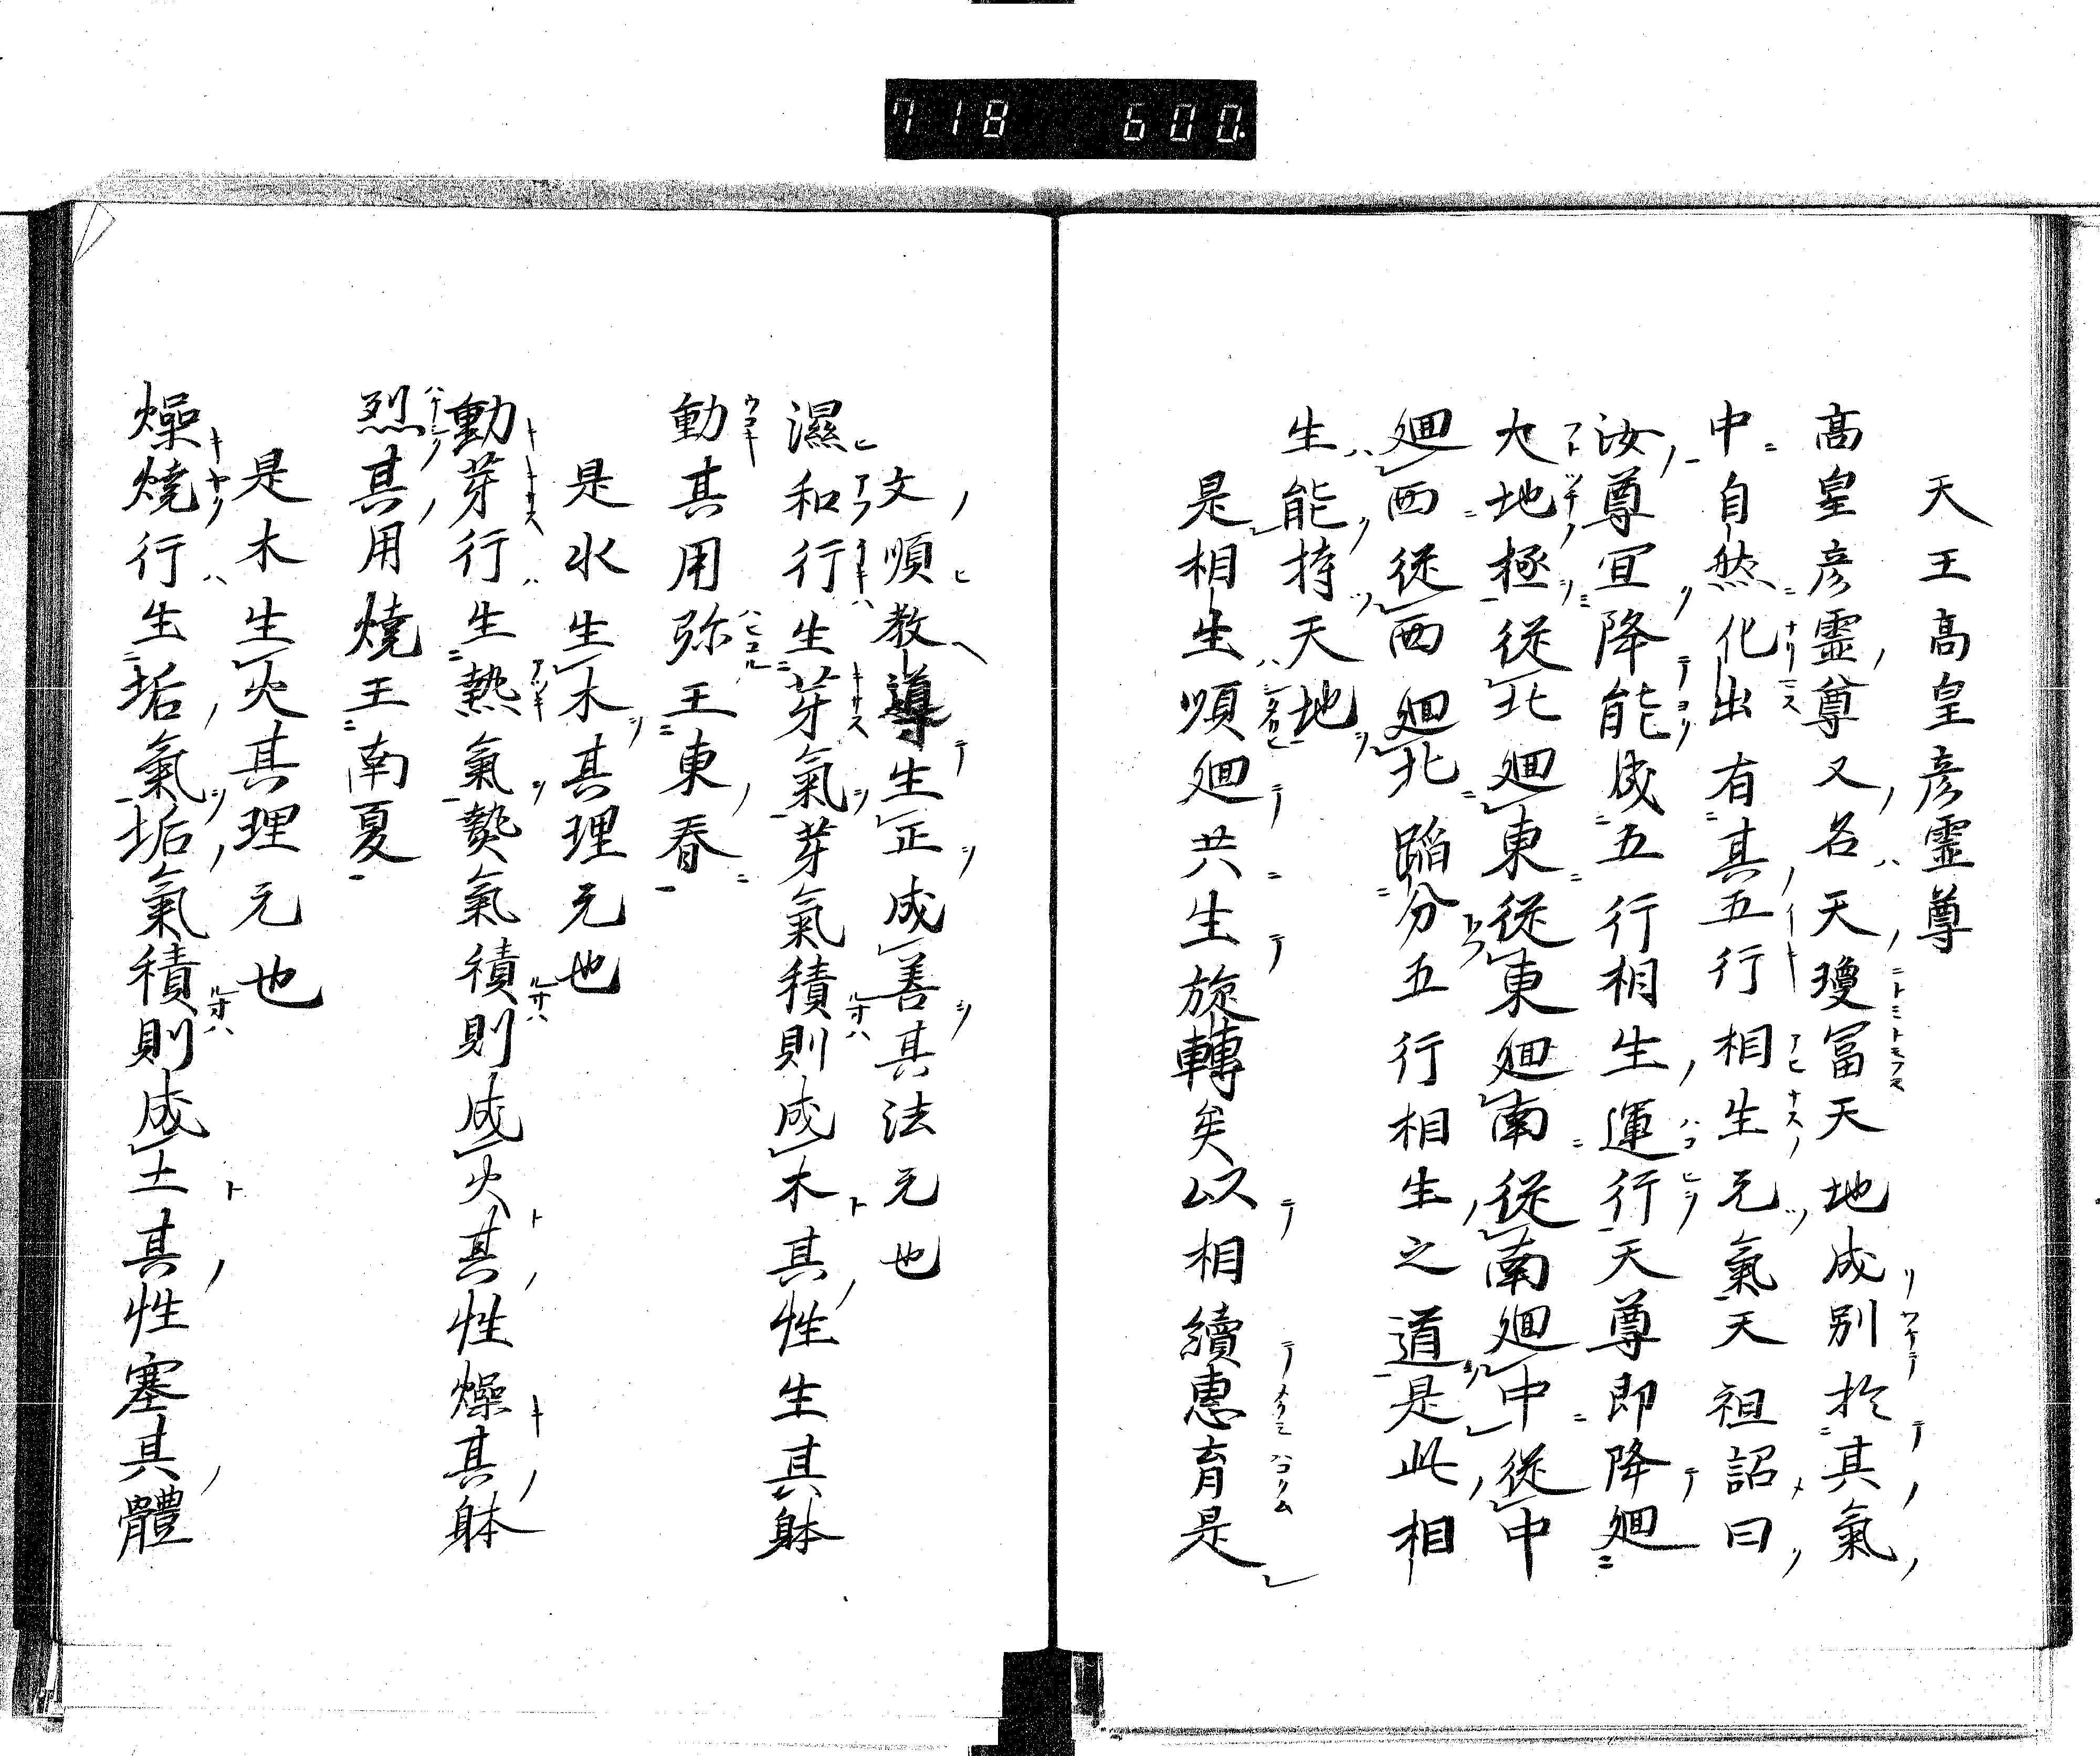 718 600.
天王高皇彦霊尊
高皇彦霊尊又名天瓊冨天地成別於其氣
中自然化出有其五行相生元氣天祖詔曰
汝尊宜降能成五行相生運行天尊即降廻
大地極従北廻東従東廻南従南廻中従中
廻西従西廻北蹈分五行相生之道是此相
生能持天地
是相生順廻共生旋轉矣以相續惠育是
文順教導生正成善其法元也
濕和行生芽氣芽氣積則成木其性生其躰
動其用弥王東春
是水生木其理元也
動芽行生熱氣熱氣積則成火其性燥其躰
烈其用燒王南夏
是木生火其理元也
燥燒行生垢氣垢氣積則成土其性塞其體